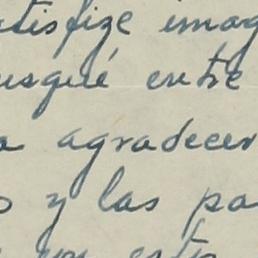 tisfize imag
usqué entre
a agradecer
s y las pa